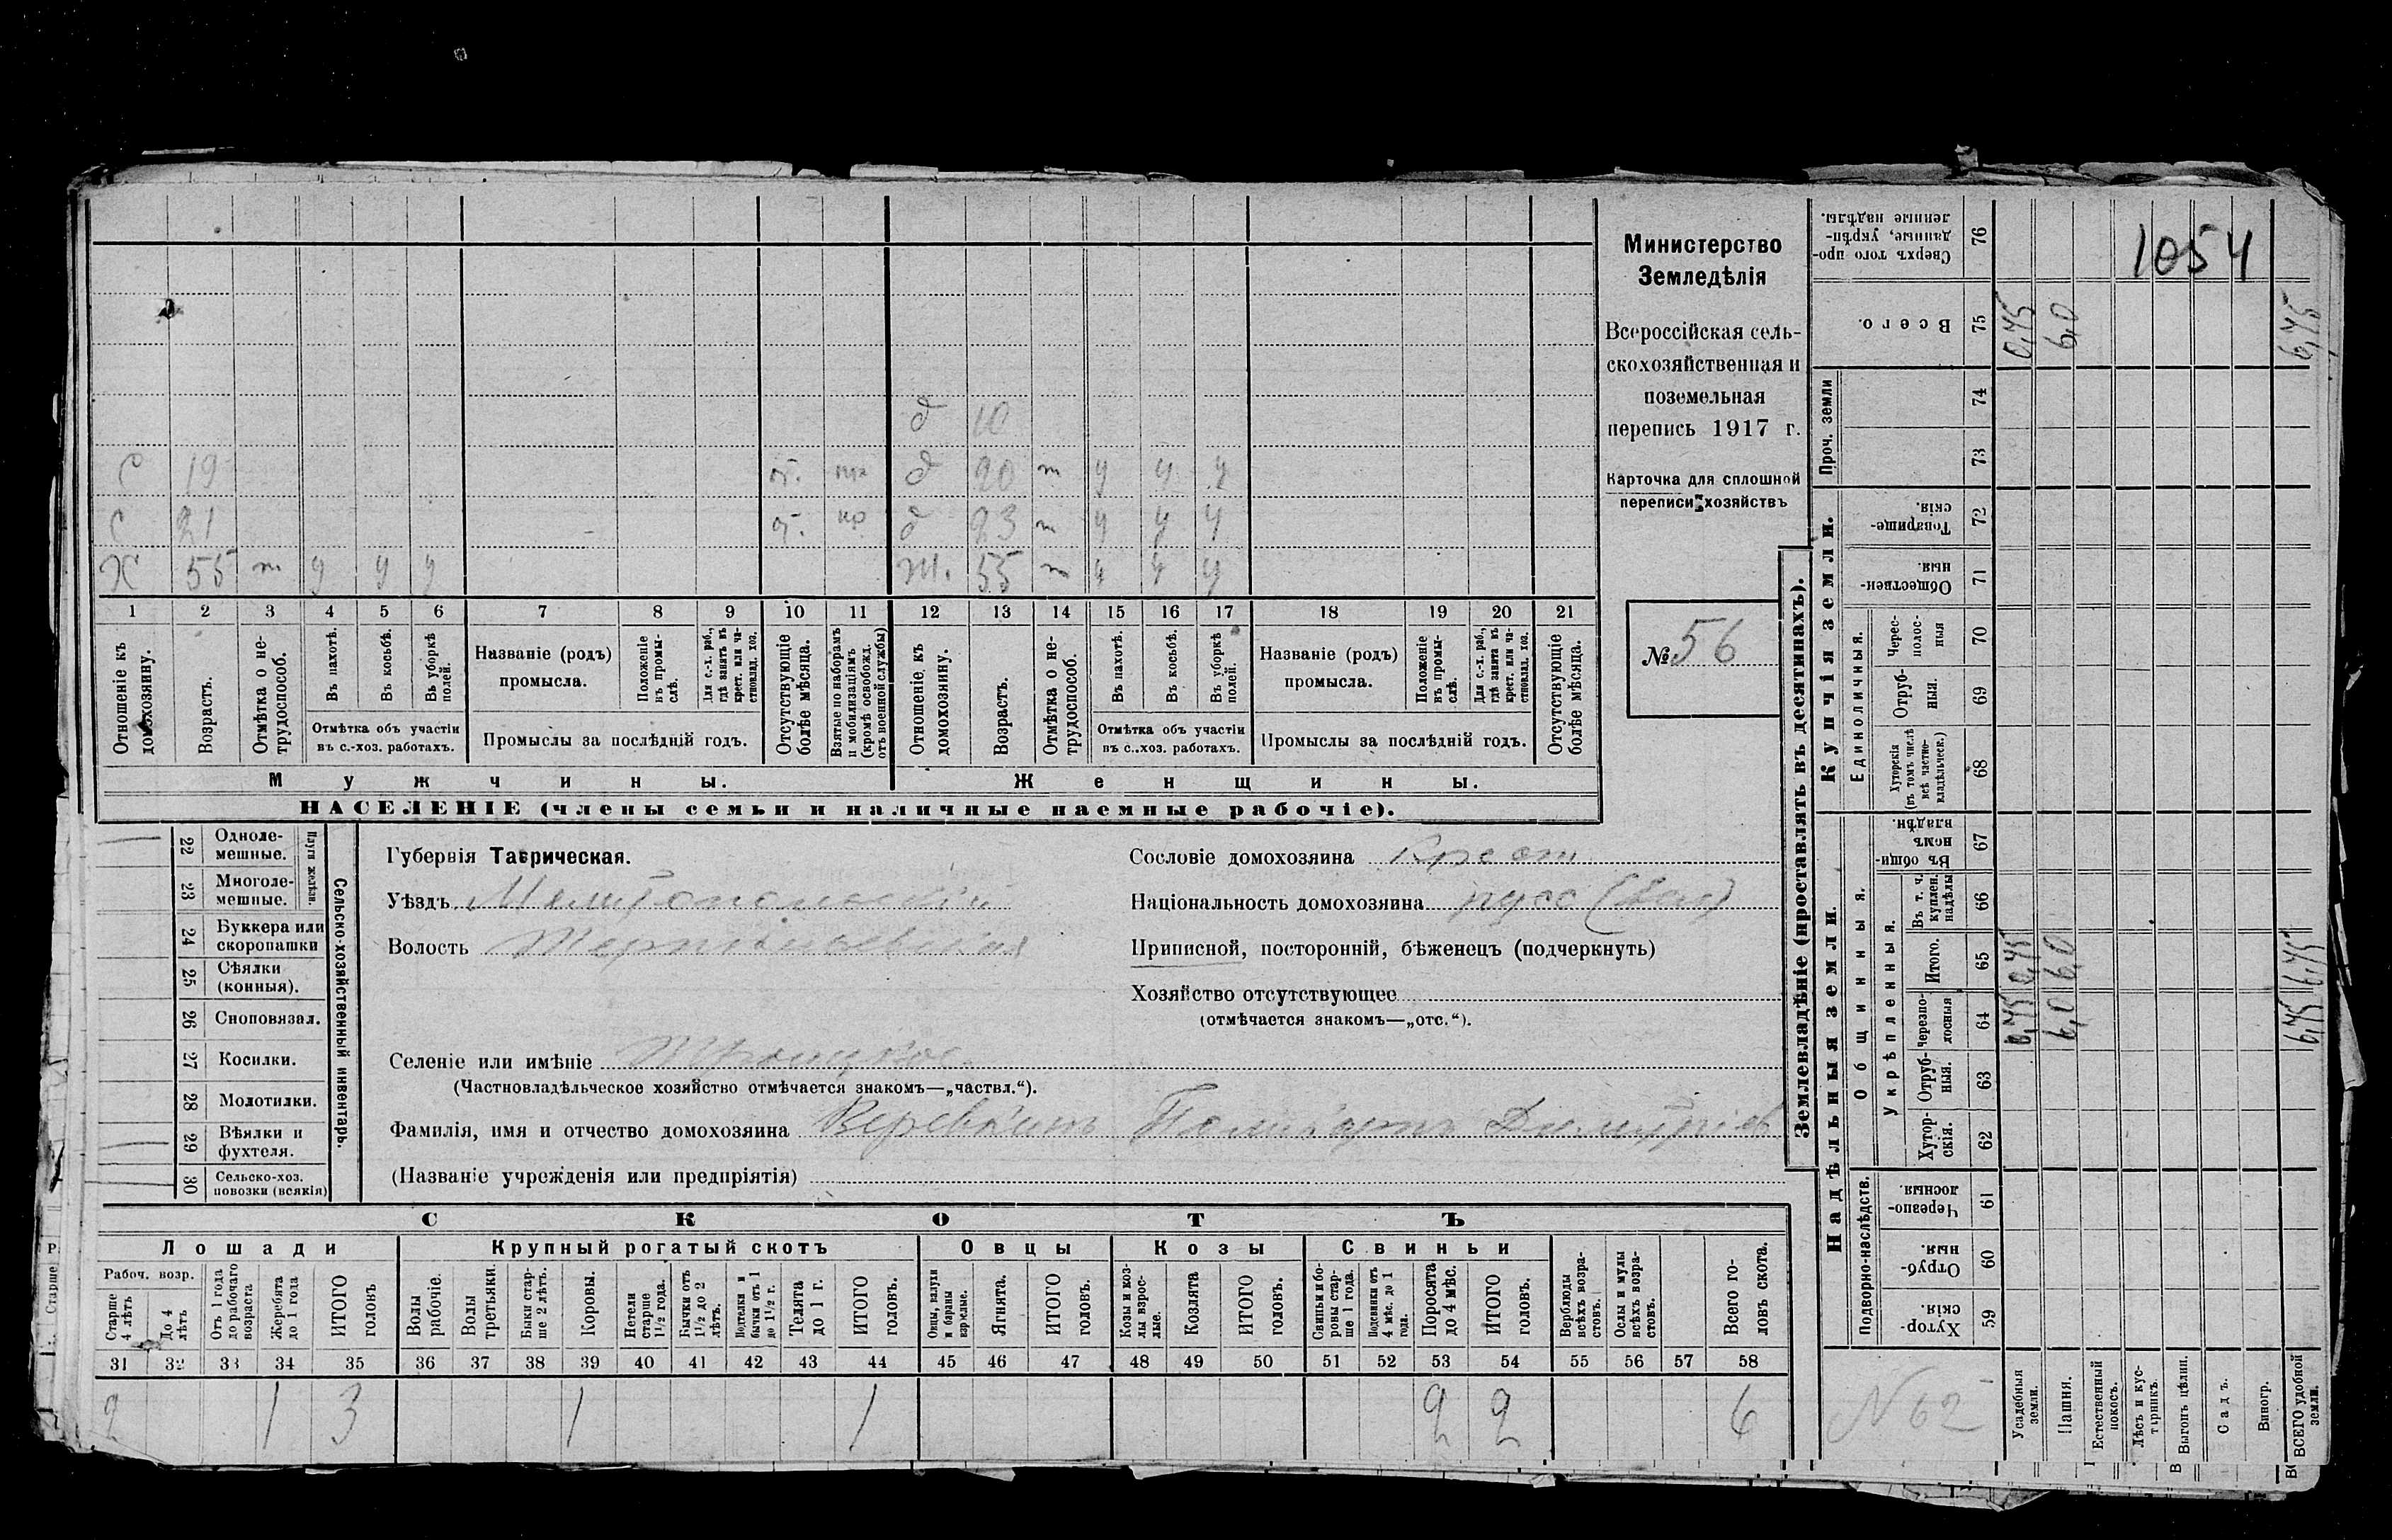 д 10
С 19 от. д 20 т у у у
С 21 д 23 т у у у
Х 55 т у у у Ж. 55 т у у у
1 2 3 4 5 6 7 8 9 10 11 12 13 14 15 16 17 18 19 20 21
Отношеніе къ домохозяину.
Возрастъ.
Отмѣтка о нетрудоспособ.
Въ пахотѣ.
Въ косьбѣ.
Въ уборкѣ полей.
Отмѣтка объ участіи
въ с.-хоз. работахъ.
Названіе (родъ)
промысла.
Положеніе въ промыслѣ.
Для с.-х. раб., гдѣ занятъ въ крест. или частновлад. хоз.
Промыслы за послѣдній годъ.
Отсутствующіе болѣе мѣсяца.
Взятые по наборамъ и мобилизаціямъ (кромѣ освобожд. отъ военной службы)
Отношеніе къ домохозяину.
Возрастъ.
Отмѣтка о нетрудоспособ.
Въ пахотѣ.
Въ косьбѣ.
Въ уборкѣ полей.
Отмѣтка объ участіи
въ с.-хоз. работахъ.
Названіе (родъ)
промысла.
Положеніе въ промыслѣ.
Для с.-х. раб., гдѣ занята въ крест. или частновлад. хоз.
Промыслы за послѣдній годъ.
Отсутствующіе болѣе мѣсяца.
Мужчины. Женщины.
НАСЕЛЕНІЕ (члены семьи и наличные наемные рабочіе).
Министерство
Земледѣлія
Всероссійская сель-
скохозяйственная и
поземельная
перепись 1917 г.
Карточка для сплошной
переписи хозяйствъ
№ 56
Сельско-хозяйственный инвентарь.
Плуги желѣзн.
22 Одноле-
мешные.
23 Многоле-
мешные.
24 Буккера или
скоропашки
25 Сѣялки
(конныя).
26 Сноповязал.
27 Косилки.
28 Молотилки.
29 Вѣялки и
фухтеля.
30 Сельско-хоз.
повозки (всякія)
Губернія Таврическая.
Уѣздъ Мелитопольскій
Волость Терпѣніевская
Селеніе или имѣніе Троицкое
(Частновладѣльческое хозяйство отмѣчается знакомъ—„частвл.“).
Фамилія, имя и отчество домохозяина Веревкинъ Поликарпъ Димитріев
(Названіе учрежденія или предпріятія)
Сословіе домохозяина Крест
Національность домохозяина русс (вел)
Приписной, посторонній, бѣженецъ (подчеркнуть)
Хозяйство отсутствующее
(отмѣчается знакомъ—„отс.“).
СКОТЪ
Лошади Крупный рогатый скотъ Овцы Козы Свиньи
Рабоч. возр.
Старше 4 лѣтъ
До 4 лѣтъ
Отъ 1 года до рабочаго возраста
Жеребята до 1 года
ИТОГО головъ
Волы рабочіе.
Волы третьяки.
Быки старше 2 лѣтъ.
Коровы.
Нетели старше 1½ года.
Бычки отъ 1½ до 2 лѣтъ.
Подтелки и бычки отъ 1 до 1½ г.
Телята до 1 г.
ИТОГО головъ.
Овцы, валухи и бараны взрослые.
Ягнята.
ИТОГО головъ.
Козы и козлы взрослые.
Козлята
ИТОГО головъ.
Свиньи и боровы старше 1 года.
Подсвинки отъ 4 мѣс. до 1 года.
Поросята до 4 мѣс.
ИТОГО головъ.
Верблюды всѣхъ возрастовъ.
Ослы и мулы всѣхъ возрастовъ.
Всего головъ скота.
31 32 33 34 35 36 37 38 39 40 41 42 43 44 45 46 47 48 49 50 51 52 53 54 55 56 57 58
2 1 3 1 1 2 2 6
Землевладѣніе (проставлять въ десятинахъ).
Надѣльныя земли. Купчія земли. Проч. земли
Подворно-наслѣдств.
Общинныя.
Укрѣпленныя.
Единоличныя.
Хуторскія. 59
Отрубныя. 60
Черезполосныя. 61
Хуторскія. 62
Отрубныя. 63
черезполосныя 64
Итого. 65
Въ т. ч. куплен. надѣлы 66
Въ общинномъ владѣн. 67
Хуторскія (въ томъ числѣ всѣ частновладѣльческ.) 68
Отрубныя. 69
Чересполосныя 70
Общественныя. 71
Товарищескія. 72
73
74
Всего. 75
Сверхъ того проданные, укрѣпленные надѣлы. 76
1054
N 62
Усадебныя земли. 0,75 0,75 0,75
Пашня. 6,0 6,0 6,0
Естественный покосъ.
Лѣсъ и кустарникъ.
Выгонъ цѣлин.
Садъ.
Виногр.
ВСЕГО удобной земли. 6,75 6,75 6,75